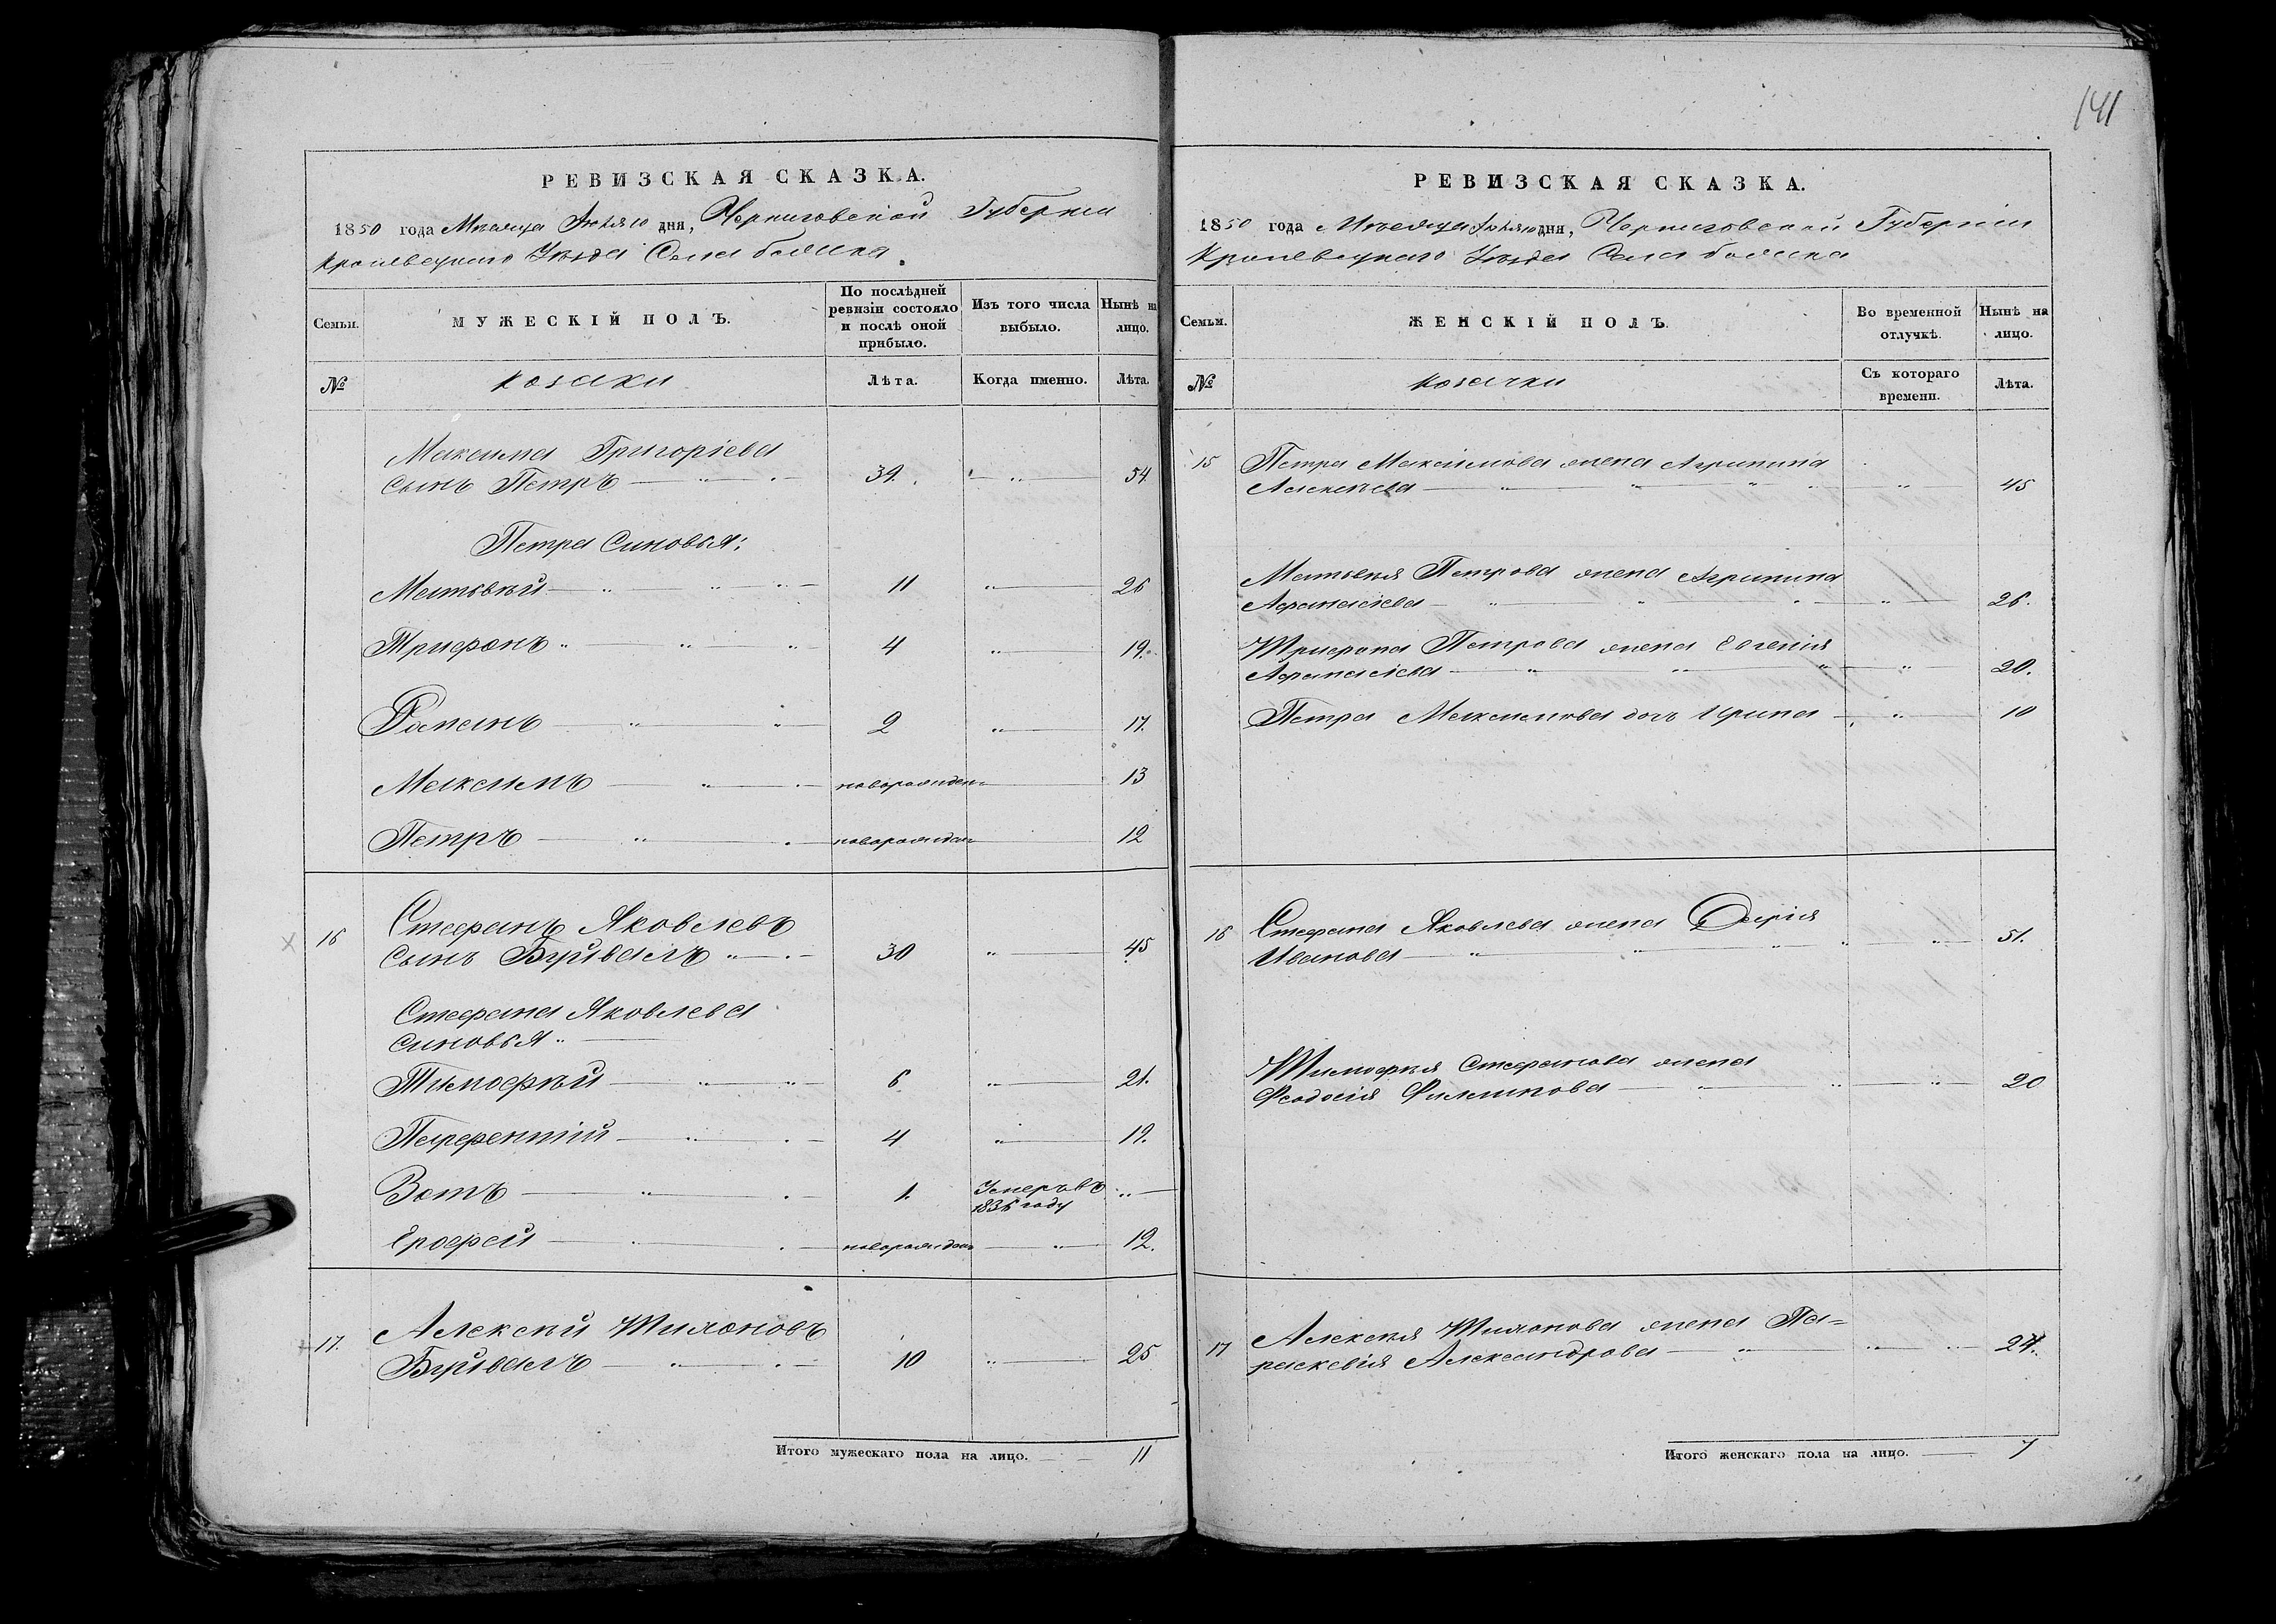 141
РЕВИЗСКАЯ СКАЗКА.
1850 года Мѣсяца дня, Черниговской Губернiи
Кролевецкаго Уѣзда Села
Семьи.
МУЖЕСКІЙ ПОЛЪ.
По послѣдней ревизіи состояло и послѣ оной прибыло.
Изъ того числа выбыло.
Нынѣ на лицо.
№
козаки
Лѣта.
Когда именно.
Лѣта.
Максима Григоріева
сынъ Петръ 39. 54
Петра синовья:
Матвѣй 11 26
Трифонъ 4 19.
Романъ 2 17.
Максимъ новорожден 13
Петръ новорожден 12
16 Стефанъ Яковлевъ
сынъ Буйвалъ 30 45
Стефана Яковлева
синовья
Тимофѣй 6 21.
Парфентій 4 19.
Зотъ 1. Умеръ въ
1836 году
Ерофей новорожден 12.
17. Алексѣй Тихоновъ
Буйвалъ 10 25
Итого мужескаго пола на лицо. 11
РЕВИЗСКАЯ СКАЗКА.
1850 года Мѣсяца дня, Черниговской Губерніи
Кролевецкаго Уѣзда Села
Семьи.
ЖЕНСКІЙ ПОЛЪ.
Во временной отлучкѣ.
Нынѣ на лицо.
№
козачки
Съ котораго времени.
Лѣта.
15 Петра Максимова жена Агрипина
Алексѣева 45
Матвѣя Петрова жена Агрипина
Афанасіева 26.
Трифона Петрова жена Евгенія
Афанасіева 20.
Петра Максимова доч Ирина 10
16 Стефана Яковлева жена Дарія
Иванова 51.
Тимофѣя Стефанова жена
Феодосія Филипова 20
17 Алексѣя Тихонова жена Па=
раскевія Александрова 24.
Итого женскаго пола на лицо. 7